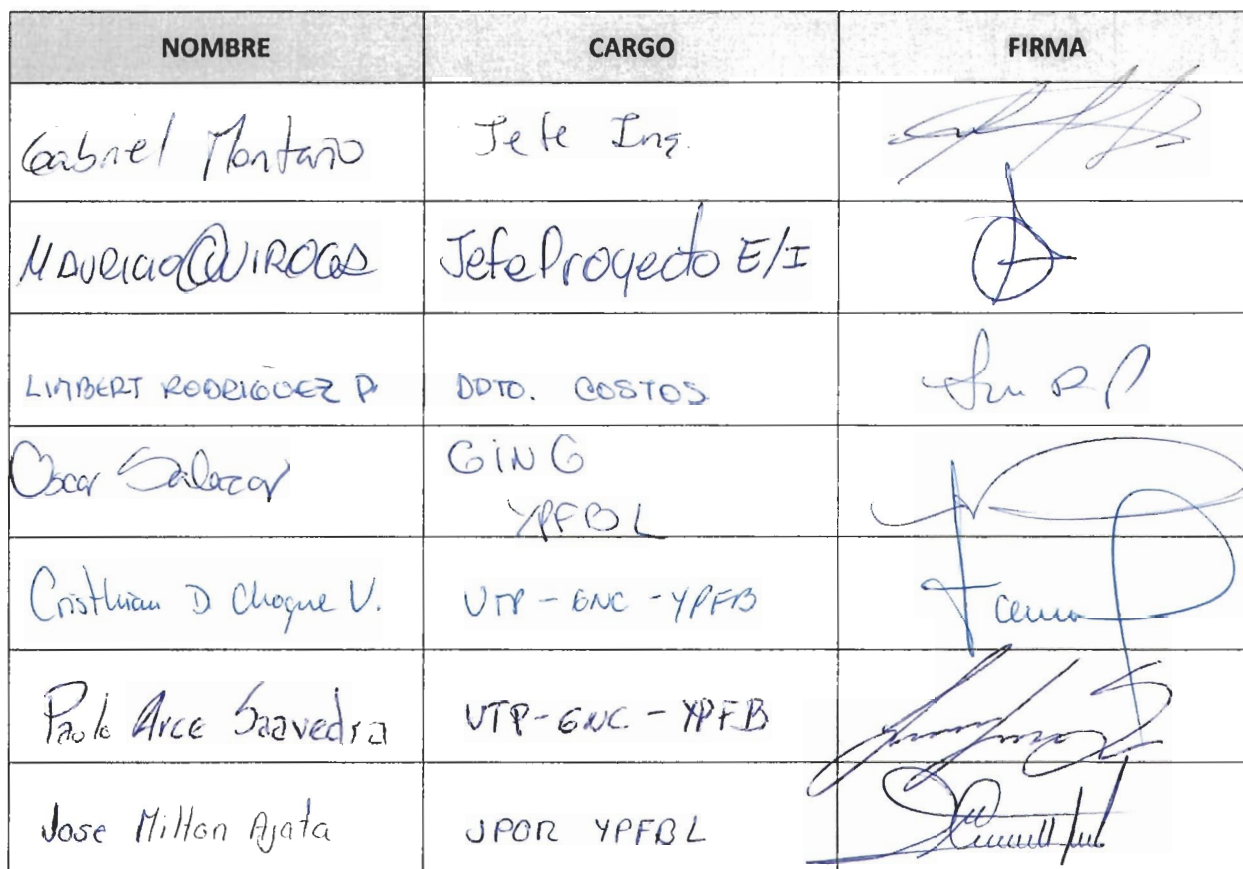 NOMBRE CARGO FIRMA
Gabriel Montaño Jefe Ing.
MAURICIO QUIROGA Jefe Proyecto E/I
LIMBERT RODRIGUEZ P. DDTO. COSTOS
Oscar Salazar GING
YPFBL
Cristhian D Choque V. UTP - GNC - YPFB
Paola Arce Saavedra UTP - GNC - YPFB
Jose Milton Ajata JPOR YPFBL